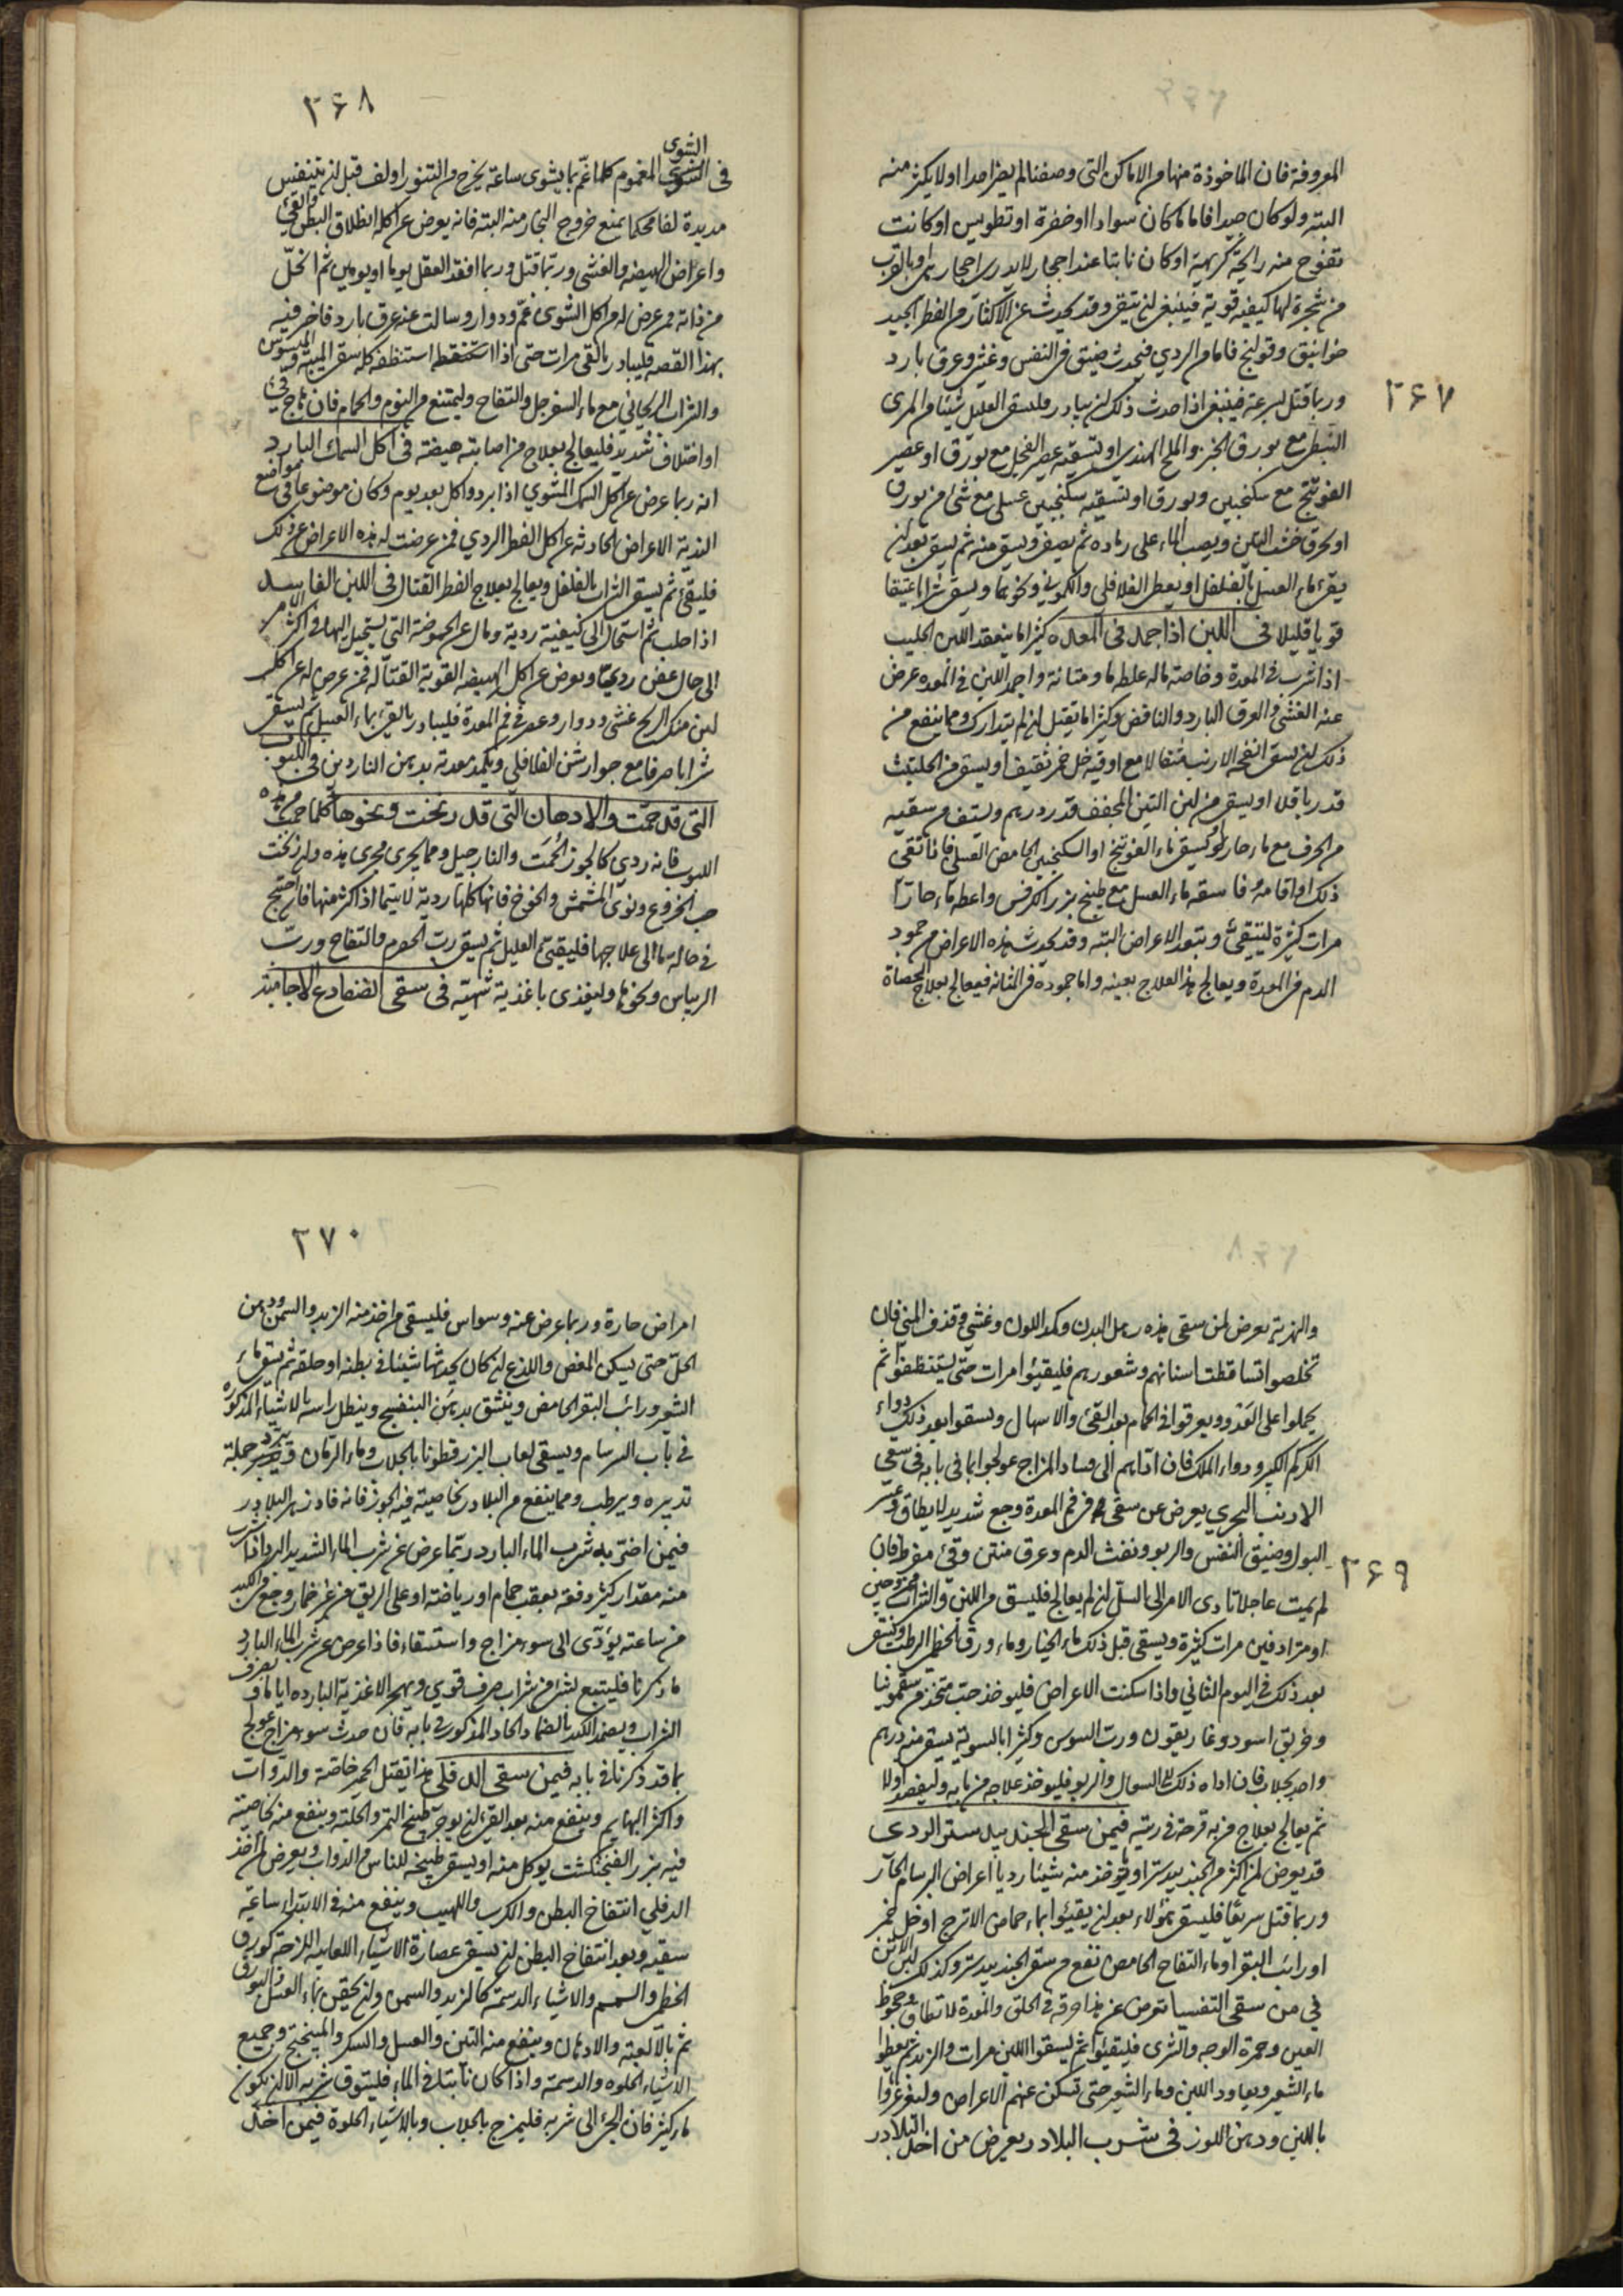 ٣۶٧
المعروفة فان الماخوذة منها من الاماكن التى وصفنا لم يضر احدا او لا يكثر منه
البتة ولو كان جيدا فاما ما كان سوادا او خضرة او تطويس او كانت
تفوح منه رائحة كريهة او كان نابتا عند احجار
من شجرة لها كيفية قوية فينبغى ان يتقى وقد يحدث عن الاكثار من الفطر الجيد
خوانيق وقولنج فاما من الردي فيحدث ضيق فى النفس وغشى وعرق بارد
وربما قتل بسرعة فينبغى اذا حدث ذلك ان يبادر وليسقى العليل شيئا من المرى
النبطى مع بورق الخبز والملح الهندى او تسقيه عصير الفجل مع بورق او عصير
الفوتنج مع سكنجبين وبورق او تسقيه سكنجبين عسلى مع شئ من بورق
او يحرق خشب التين ويصب الماء على رماده ثم يصفى ويسقى منه ثم يسقى بعد ان
يقئ ماء العسل بالفلفل او يعطى الفلافلى والكمونى ونحوهما ويسقى شرابا عتيقا
قويا قليلا فى اللبن اذا جمد فى المعدة كثيرا ما ينعقد اللبن الحليب
اذا شرب فى المعدة وخاصة ماله غلظ ما ومتانة واجمد اللبن فى المعدة عرض
عنه الغشى والعرق البارد والنافض وكثيرا ما يقتل ان لم يتدارك ومما ينفع من
ذلك ان يسقى انفحة الارنب مثقالا مع اوقية خل خمر ثقيف او يسقى من الحلتيت
قدر باقلا او يسقى من لبن التين المجفف قدر درهم ويستف من سقيه
من الحرف مع ماء حار او يسقى ماء الفوتنج او السكنجبين الحامض العسلى فاذا تقى
ذلك او اقامه فاسقه ماء العسل مع طبيخ بزر الكرفس واعطه ماء حارا
مرات كثيرة لينتقئ وبتعد الاعراض البتة وقد يحدث هذه الاعراض من جمود
الدم فى المعدة ويعالج بهذا العلاج بعينه واما جموده فى المثانة فيعالج بعلاج الحصاة
٣۶٨
الشوى
فى الشوى المغموم كلما غم بما يشوى ساعة يخرج من التنور او لف قبل ان يتنفس
مديدة لفا محكما يمنع خروج البخار منه البتة فانه يعرض عن اكله انطلاق البطن والقئ
واعراض الهيضة والغشى وربما قتل وربما افقد العقل يوما او يومين ثم انحل
من ذاته فمن عرض له من اكل الشوى غم ودوار وسالت عنه عرق بارد فاخبر فيه
بهذا القصه فليبادر بالقى مرات حتى اذا استنظفه كله سقى الميبة والميسوس
والشراب الريحانى مع ماء السفرجل والتفاح وليمتنع من النوم والحمام فان هاج قئ
او اختلاف شديد فليعالج بعلاج من اصابته هيضة فى اكل السمك البارد
انه ربما عرض عن اكل السمك المشوي اذا برد واكل بعد يوم وكان موضوعا فى مواضع
الندية الاعراض الحادثة عن اكل الفطر الردي فمن عرضت له هذه الاعراض عن ذلك
فليتقئ ثم يسقى الشراب بالفلفل ويعالج بعلاج الفطر القتال فى اللبن الفاسد
اذا حلب ثم استحال الى كيفية ردية ومال عن الحموضة التى يستحيل اليها فى اكثر الامر
الى حال عفن ردي ويعرض عن اكله الهيضة القوية القتالة فمن عرض له عن اكل
لبن منكر الريح غشى ودوار وعصر فى فم المعدة فليبادر بالقئ بماء العسل ثم يسقى
شرابا صرفا مع جوارشن الفلافلى ويكمد معدته بدهن الناردين فى اللبوب
التى قد حمت والادهان التى قد زنخت ونحوها كلما حمت من هذه
اللبوب فانه ردي كالجوز الحمت والنارجيل ومما يجرى مجرى هذه وان زنخت
حب الخروع ونوى المشمش والخوخ فانها كلها ردية لا سيما اذا اكثر منها فان احتيج
فى حالة ما الى علاجها فليتقئ العليل ثم يسقى رب الحصرم والتفاح ورب
الريباس ونحوها وليغذى باغذية شهية فى سقى الضفادع الاجامية
٣۶٩
والنهرية يعرض لمن سقى هذه رهل البدن وكمد اللون وغشى وقذف المنى فان
تخلصوا تساقطت اسنانهم وشعورهم فليقيئوا مرات حتى يستنظفوا ثم
يحملوا على العدو ويعرقوا فى الحمام بعد القئ والاسهال ويسقوا بعد ذلك دواء
الكركم الكبير ودواء الملك فان اداهم الى فساد المزاج عولجوا بما فى بابه فى سقى
الارنب البحري يعرض عن سقى هذه فى فم المعدة وجع شديد لا يطاق وعسر
البول وضيق النفس والربو ونفث الدم وعرق منتن وقئ مفرط فان
لم يمت عاجلا تادى الامر الى السل ان لم يعالج فليسق من اللبن والشراب ممزوجين
او مترادفين مرات كثيرة ويسقى قبل ذلك ماء الخيار وماء ورق الخطمى الرطب
بعد ذلك فى اليوم الثانى واذا سكنت الاعراض فليوخذ حب متخذ من سقمونيا
وخربق اسود وغاريقون ورب السوس وكثيرا بالسوية يسقى منه درهم
واحد بجلاب فان اداه ذلك الى السعال والربو فليوخذ علاجه من بابه وليفصد اولا
ثم يعالج بعلاج من به قرحة فى ريته فيمن سقى الجندبيدستر الردى
قد يعرض لمن اكثر من الجندبيدستر او يوخذ منه شيئا رديا اعراض البرسام الحار
وربما قتل سريعا فليسق هؤلاء بعد ان يقيئوا بماء حماض الاترج او خل خمر
او رائب البقر او ماء التفاح الحامض نفع من سقى الجندبيدستر وكذلك لبن الاتن
فى من سقى التفسيا تعرض عن هذا حرقة فى الحلق والمعدة لا تطاق وجحوظ
العين وحمرة الوجه والشرى فليتقيئوا ثم ليسقوا اللبن مرات والزبد ثم يعطوا
ماء الشعير ويعاود اللبن وماء الشعير حتى تسكن عنهم الاعراض وليغرغروا
باللبن ودهن اللوز فى شرب البلادر يعرض من اخذ البلادر
٣٧٠
امراض حارة وربما عرض عنه وسواس فليسقى من اخذ منه الزبد والسمن ودهن
الحل حتى يسكن المغص واللذع ان كان يحدث شيئا فى بطنه او حلقه ثم يسقى ماء
الشعير ورائب البقر الحامض وينشق بدهن البنفسج وينطل راسه بالاشياء المذكورة
فى باب السرسام ويسقى لعاب البزرقطونا بالجلاب وماء الرمان جملة
تدبيره ويرطب ومما ينفع من البلادر بخاصية فيه الجوز فانه فادزهر البلادر
فيمن اضر به شرب الماء البارد ربما عرض عن شرب الماء الشديد البرد اذا شرب
منه مقدار كثير دفعة بعقب حمام او رياضة او على الريق عن خمار وجع فى الكبد
من ساعته يؤدى الى سوء مزاج واستسقاء فاذا عرض عن شرب الماء البارد
ما ذكرنا فليتبع بشئ من شراب صرف قوي ويهجر الاغذية الباردة اياما
الشراب ويضمد الكبد بالضماد الحاد المذكور فى بابه فان حدث سوء مزاج عولج
بما قد ذكرنا فى بابه فيمن سقى الدفلى هذا يقتل الحمير خاصة والدواب
واكثر البهايم وينفع منه بعد القئ ان يوجر طبيخ التمر والحلبة وينفع منه بخاصية
فيه بزر الفنجنكشت يوكل منه او يسقى طبيخه للناس والدواب ويعرض لمن اخذ
الدفلى انتفاخ البطن والكرب واللهيب وينفع منه فى الابتداء ساعة
سقيه وبعد انتفاخ البطن ان يسقى عصارة الاشياء اللعابية اللزجة كورق
الخطمى والسمسم والاشياء الدسمة كالزبد والسمن وان يحقن بماء العسل والبورق
ثم بالالعبة والادهان وينفع منه التين والعسل والسكر والميبختج وجميع
الاشياء الحلوه والدسمة واذا كان نابتا فى الماء فليتوق شربه الا ان يكون
ماء كثير فان الجئ الى شربه فليمزج بالجلاب وبالاشياء الحلوة فيمن اخذ